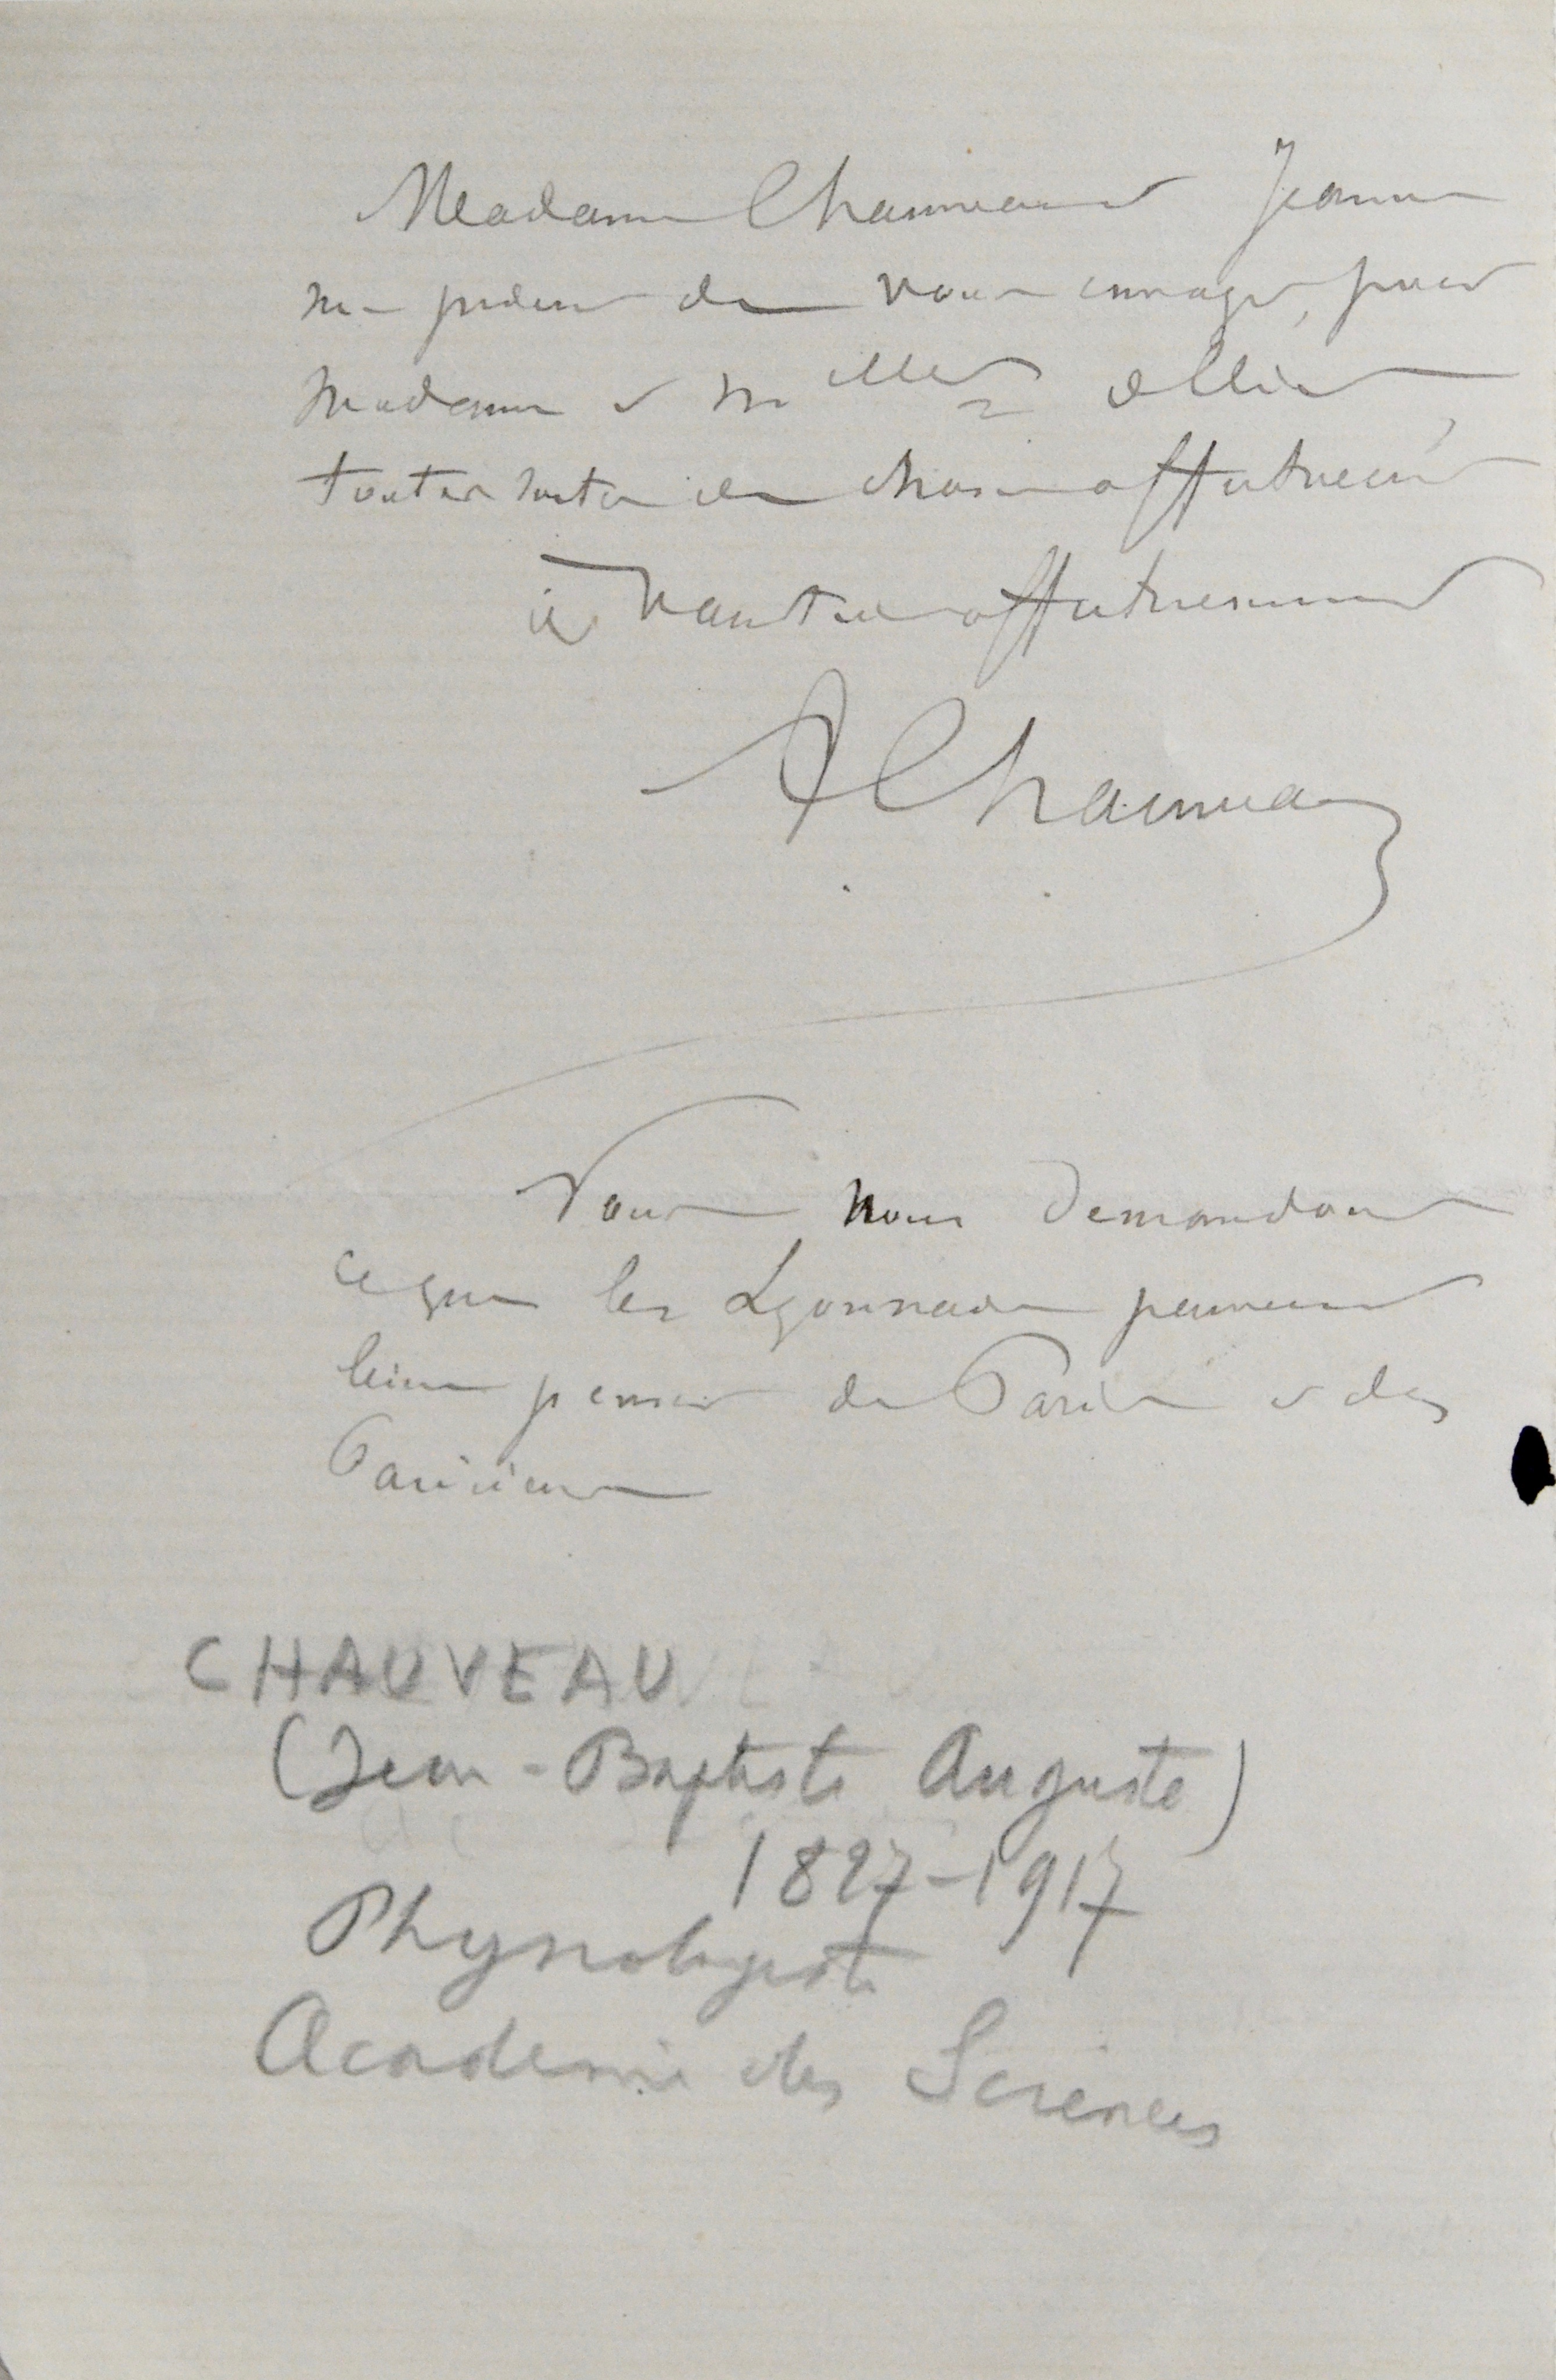 Madame Chauveau et Jeanne
me prient de vous envoyer, pour
Madame et Melles Ollier,
toutes sortes de choses affectueuses
à vous très affectueusement
AChauveau
Nous nous demandons
ce que les Lyonnais peuvent
bien penser de Paris et des
Parisiens
CHAUVEAU
(Jean-Baptiste Auguste)
1827-1917
Physiologiste
Académie des Sciences